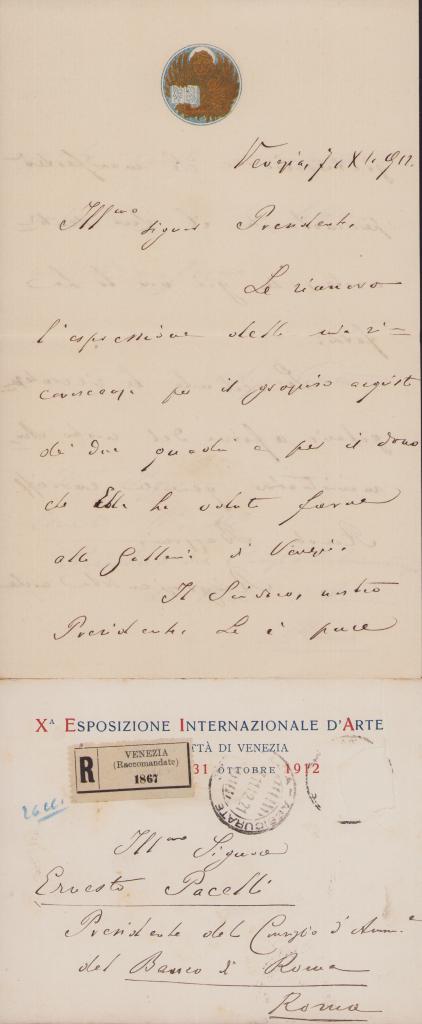 Venezia, 7. XI. 1912.
Ill.mo Signor Presidente,
Le rinnovo
l'espressione della mia ri=
conoscenza per il generoso acquisto
dei due quadri e per il dono
che Ella ha voluto farne
alla Galleria di Venezia.
Il Sindaco, nostro
Presidente, Le è pure
Xª ESPOSIZIONE INTERNAZIONALE D'ARTE
CITTÀ DI VENEZIA
31 OTTOBRE 1912
R
VENEZIA
(Raccomandate)
1867
ASSICURATE
Ill.mo Signor
Ernesto Pacelli
Presidente del Consiglio d'Amm.e
del Banco di Roma
Roma